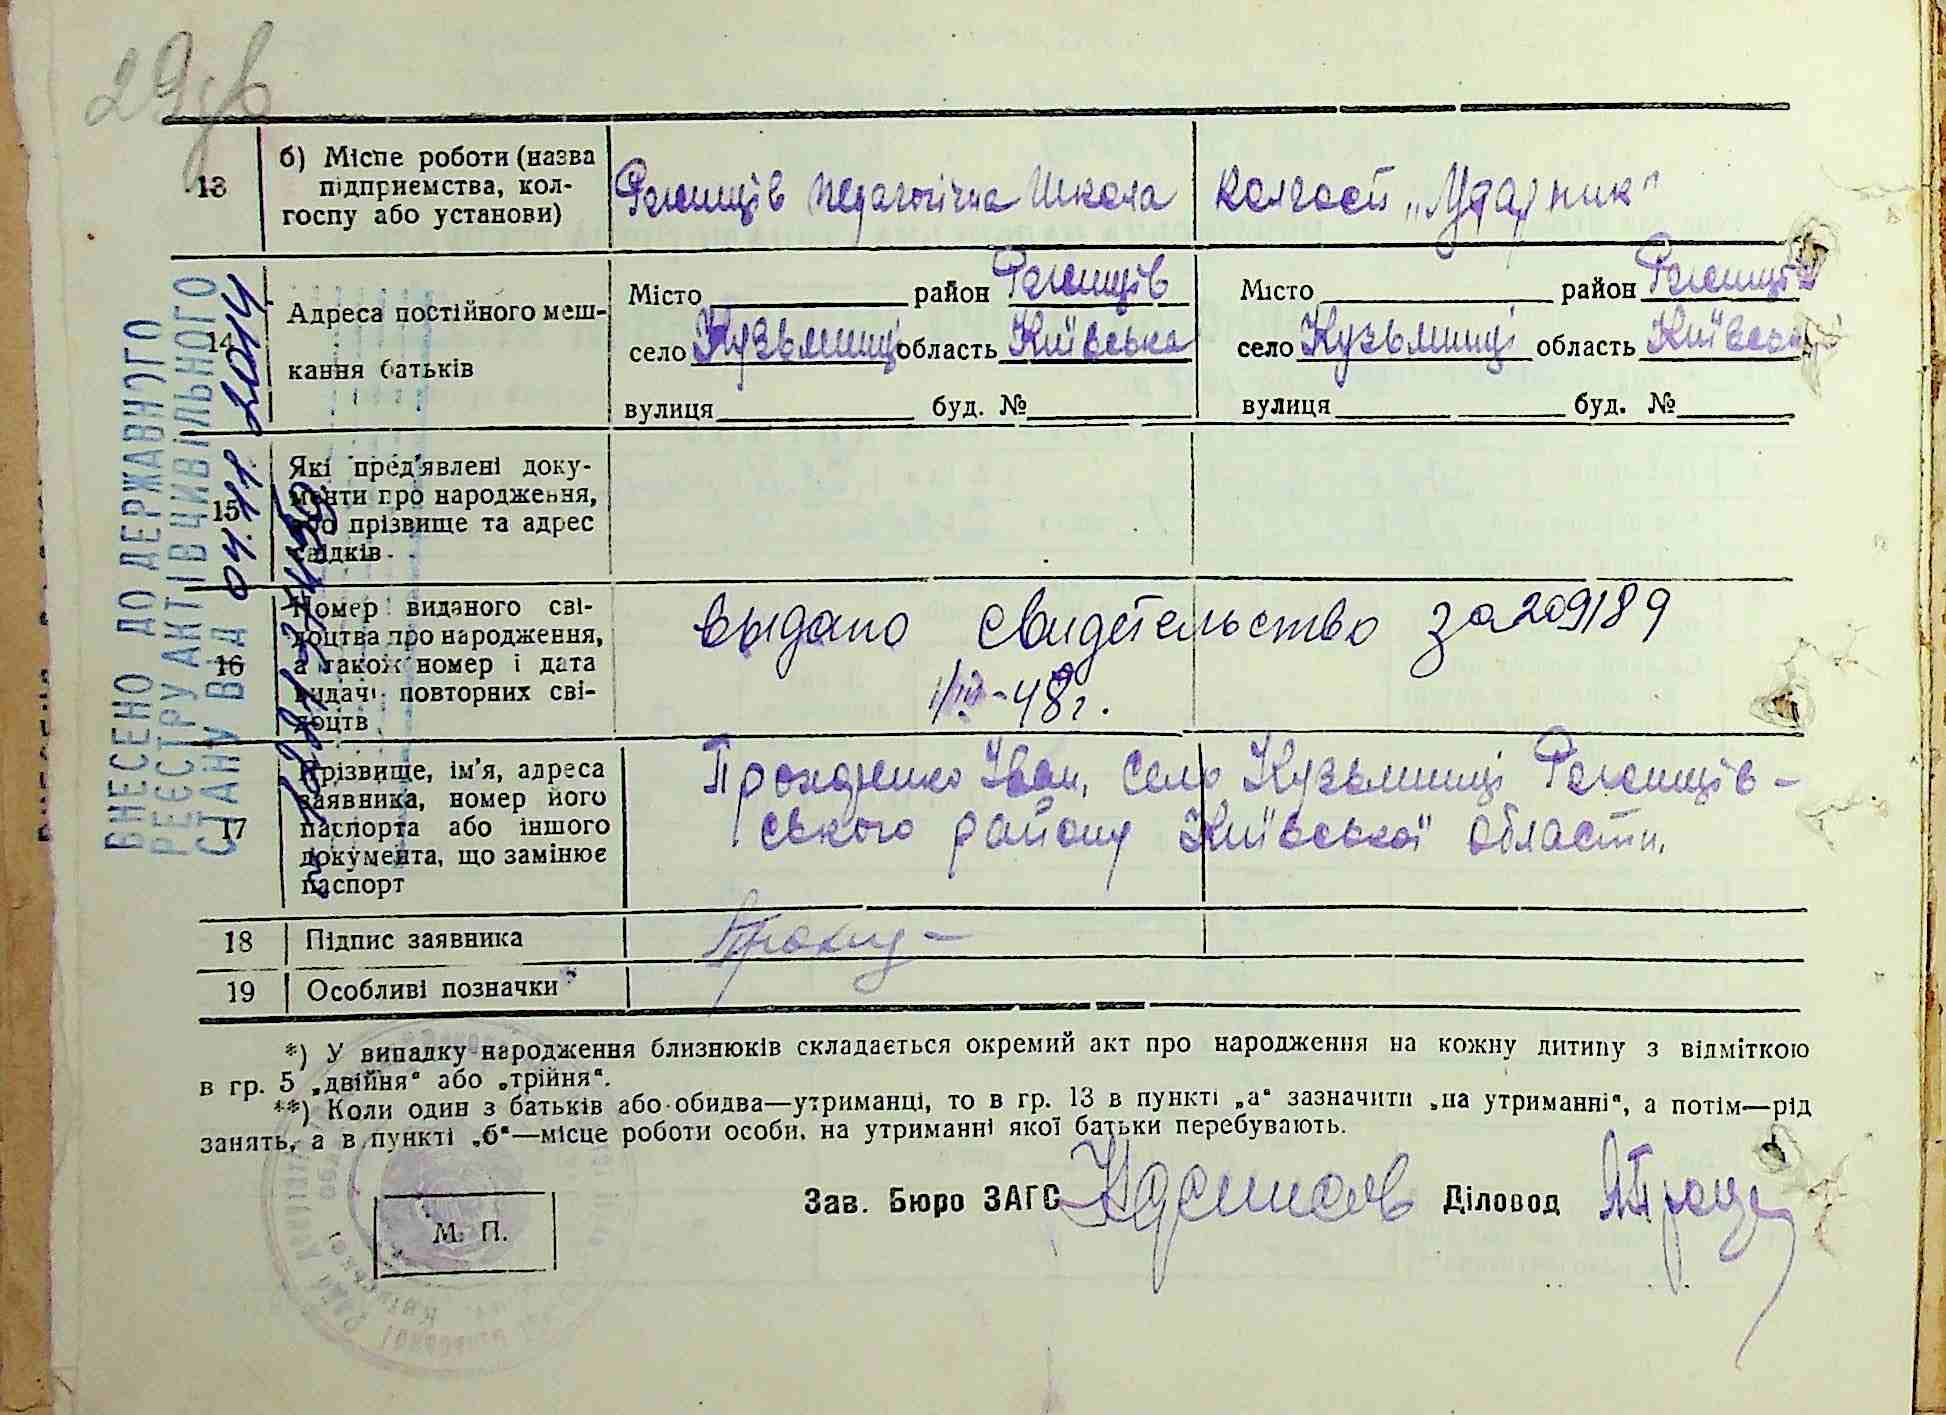 29зв
13
б) Місце роботи (назва
підприємства, кол-
госпу або установи)
Ржищів педагогічна школа
колгосп „Ударник"
14
Адреса постійного меш-
кання батьків
Місто район Ржищів
село Кузьминці область Київська
вулиця буд. №
Місто район Ржищів
село Кузьминці область Київська
вулиця буд. №
15
Які пред'явлені доку-
менти про народження,
або прізвище та адрес
свідків
16
Номер виданого сві-
доцтва про народження,
а також номер і дата
видачі повторних сві-
доцтв
выдано свидетельство за 209189
1/III-48 г.
17
Прізвище, ім'я, адреса
заявника, номер його
паспорта або іншого
документа, що замінює
паспорт
Іван, село Кузьминці Ржищів-
ського району Київської области.
18
Підпис заявника
19
Особливі позначки
*) У випадку народження близнюків складається окремий акт про народження на кожну дитину з відміткою
в гр. 5 „двійня" або „трійня".
**) Коли один з батьків або обидва—утриманці, то в гр. 13 в пункті „а" зазначити „на утриманні", а потім—рід
занять, а в пункті „б"—місце роботи особи, на утриманні якої батьки перебувають.
Зав. Бюро ЗАГС
Діловод
М. П.
ВНЕСЕНО ДО ДЕРЖАВНОГО
РЕЄСТРУ АКТІВ ЦИВІЛЬНОГО
СТАНУ ВІД 04.11.2014